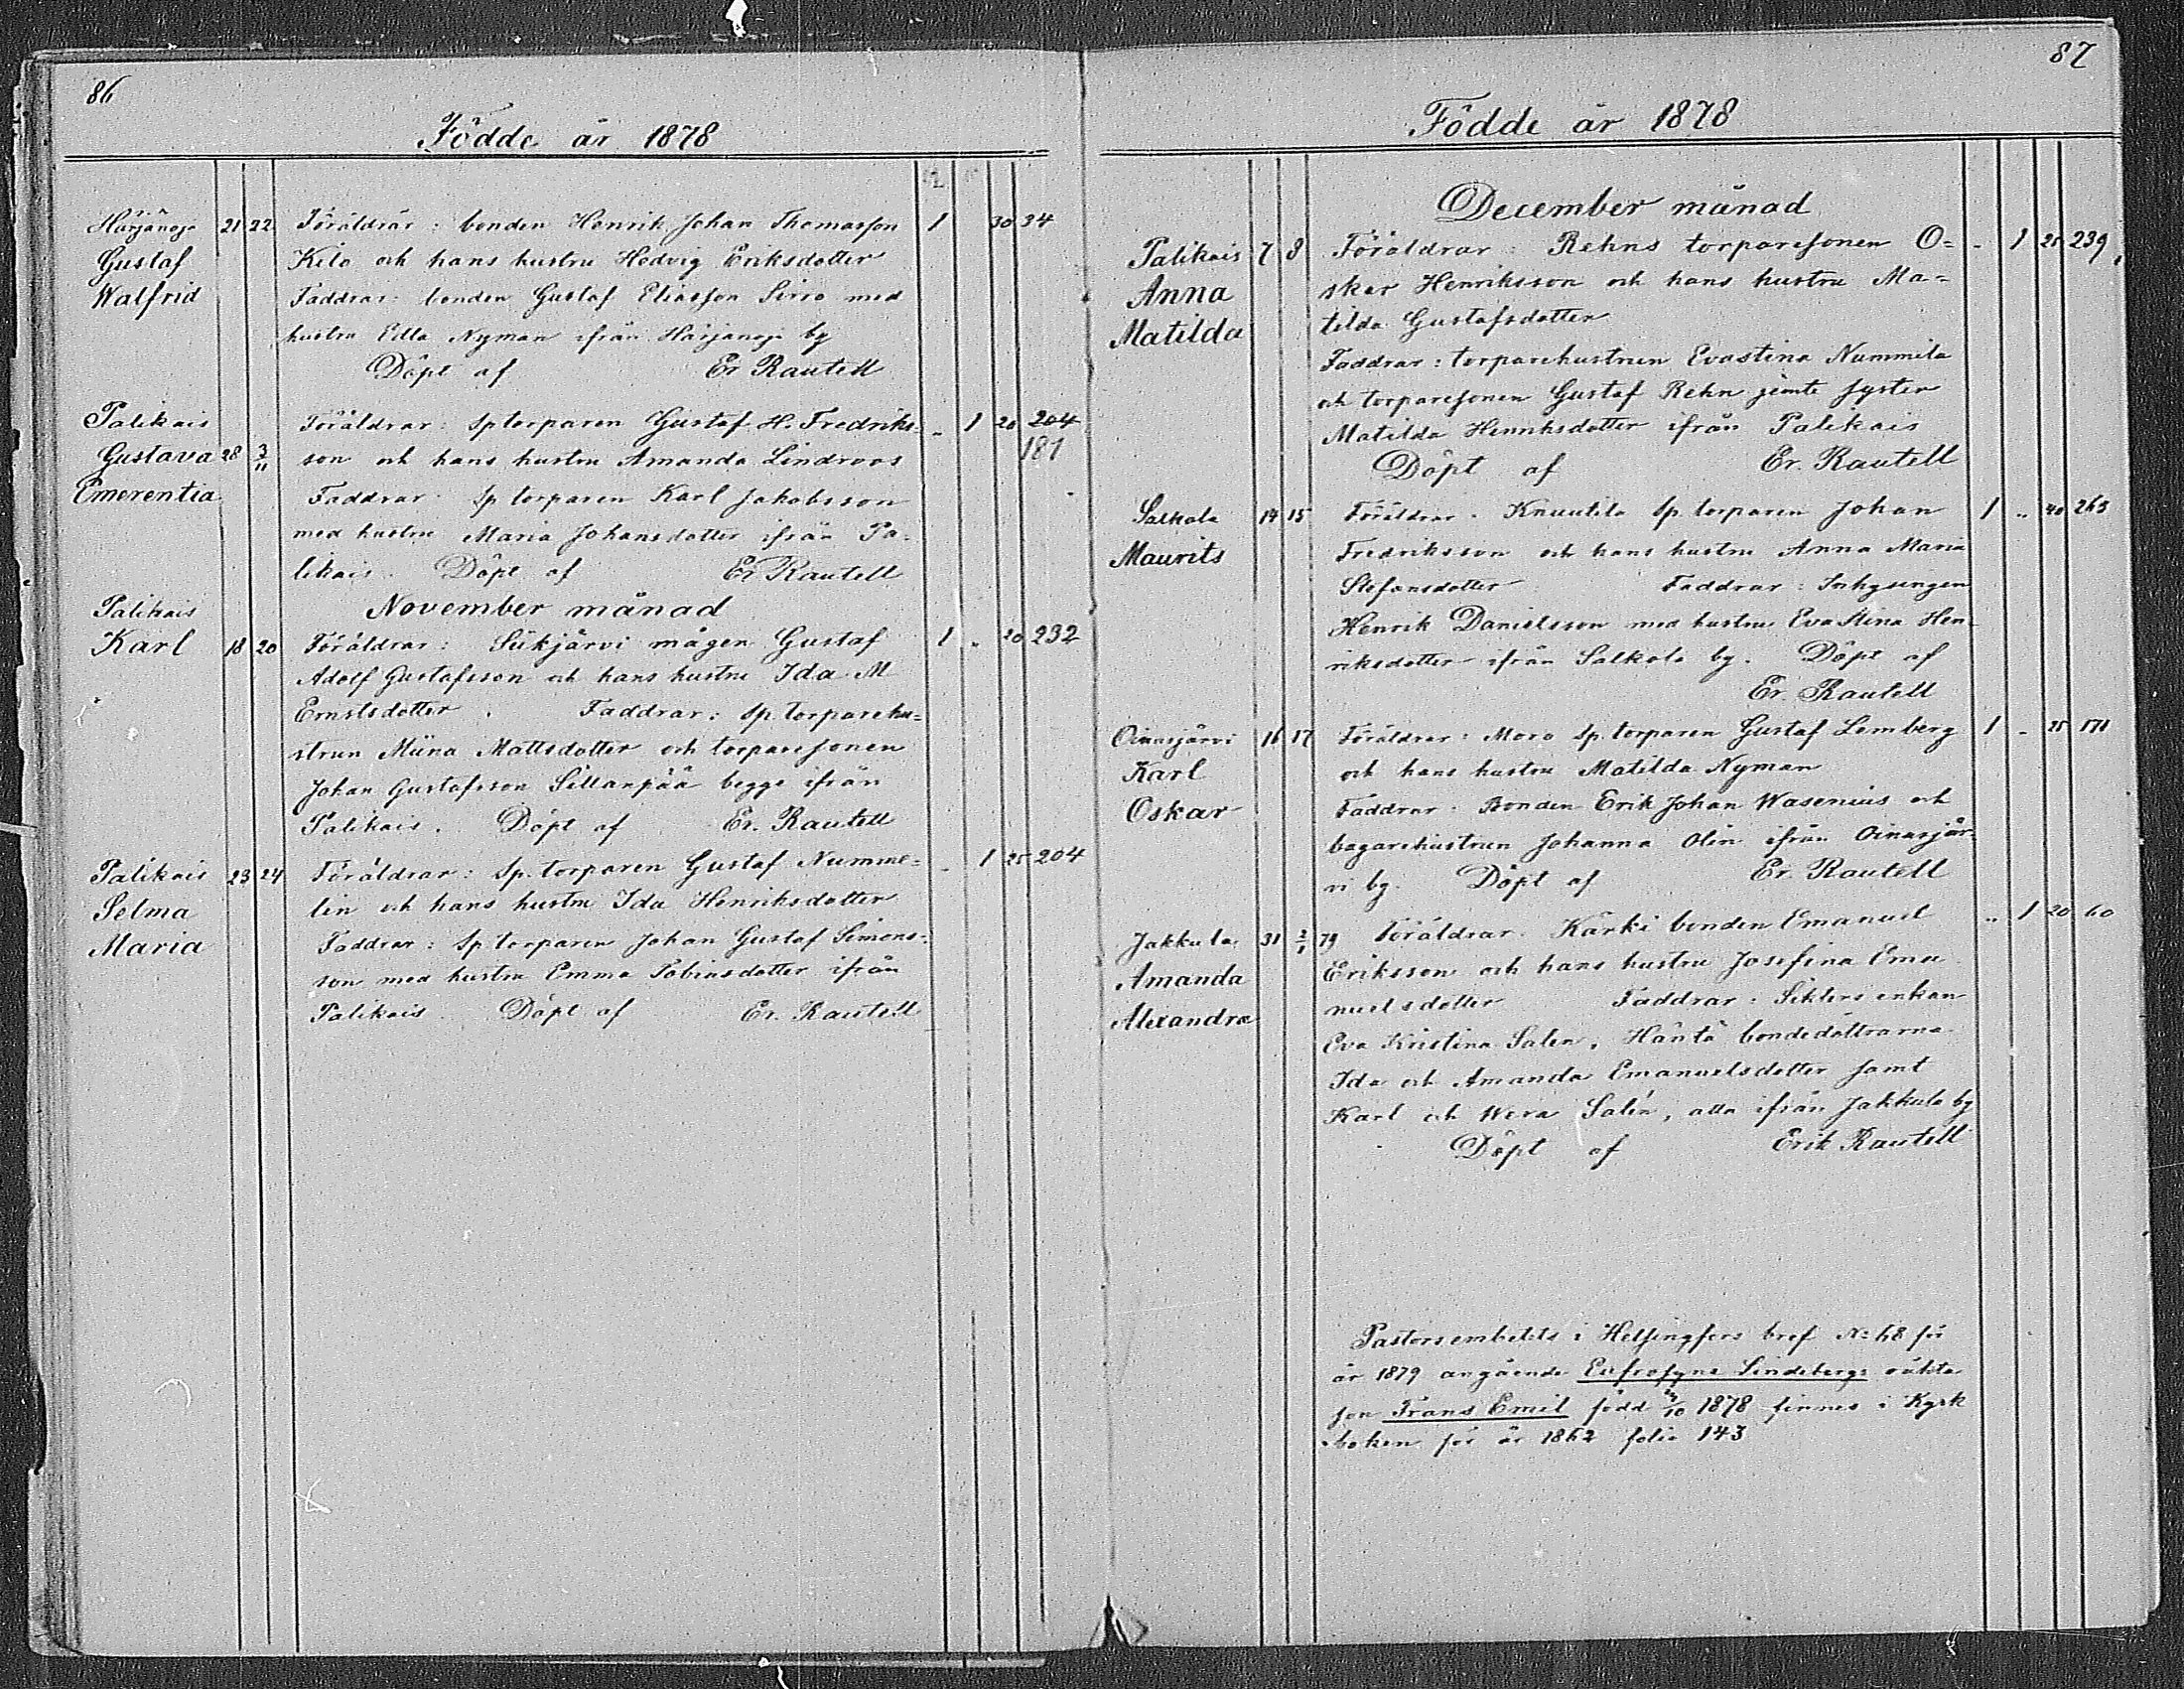 86
Födde år 1878
Härjänoja 21 22 Föräldrar: bonden Henrik Johan Thomasson 1 30 34
Gustaf Kilo och hans hustru Hedvig Eriksdotter
Walfrid Faddrar: bonden Gustaf Eliasson Sirro med
hustru Edla Nyman ifrån Härjänoja by
Döpt af Er Rautell
Palikais Föräldrar: Sp torparen Gustaf H. Fredriks- „ 1 20 204
Gustava 28 3/11 son och hans hustru Amanda Lindroos 181
Emerentia Faddrar: Sp torparen Karl Jakobsson
med hustru Maria Johansdotter ifrån Pa-
likais. Döpt af Er Rautell
Palikais November månad
Karl 18 20 Föräldrar: Siikjärvi mågen Gustaf 1 „ 20 232
Adolf Gustafsson och hans hustru Ida M
Ernstsdotter. Faddrar: Sp. torparehu-
strun Miina Mattsdotter och torparesonen
Johan Gustafsson Sillanpää begge ifrån
Palikais. Döpt af Er. Rautell
Palikais 23 24 Föräldrar: Sp. torparen Gustaf Numme- „ 1 25 204
Selma lin och hans hustru Ida Henriksdotter
Maria Faddrar: Sp torparen Johan Gustaf Simons-
son med hustru Emma Tobiasdotter ifrån
Palikais Döpt af Er. Rautell
87
Födde år 1878
December månad
Palikais 7 8 Föräldrar: Rehns torparesonen O= „ 1 25 239
Anna skar Henriksson och hans hustru Ma-
Matilda tilda Gustafsdotter
Faddrar: torparehustrun Evastina Nummila
och torparesonen Gustaf Rehn jemte syster
Matilda Henriksdotter ifrån Palikais
Döpt af Er. Rautell
Salkola 14 15 Föräldrar. Knuutila Sp. torparen Johan 1 „ 40 265
Maurits Fredriksson och hans hustru Anna Maria
Stefansdotter Faddrar: Inhysingen
Henrik Danielsson med hustru Eva Stina Hen-
riksdotter ifrån Salkola by. Döpt af
Er. Rautell
Oinasjärvi 16 17 Föräldrar: Moro Sp. torparen Gustaf Lemberg 1 „ 25 171
Karl och hans hustru Matilda Nyman
Oskar Faddrar. Bonden Erik Johan Wasenius och
bagarehustrun Johanna Olin ifrån Oinasjär-
vi by. Döpt af Er. Rautell
Jakkula 31 2/1 79 Föräldrar. Kärki bonden Emanuel „ 1 20 60
Amanda Eriksson och hans hustru Josefina Ema
Alexandra nuelsdotter Faddrar: enkan
Eva Kristina Salen, Häntä bondedöttrarna
Ida och Amanda Emanuelsdotter samt
Karl och Wera Salén, alla ifrån Jakkula by
Döpt af Erik Rautell
Pastorsembetets i Helsingfors bref No 68 för
år 1879 angående Eufrosyne Lindebergs oäkta
son Frans Emil född 1878 finnes i Kyrk
boken för år 1862 folio 143